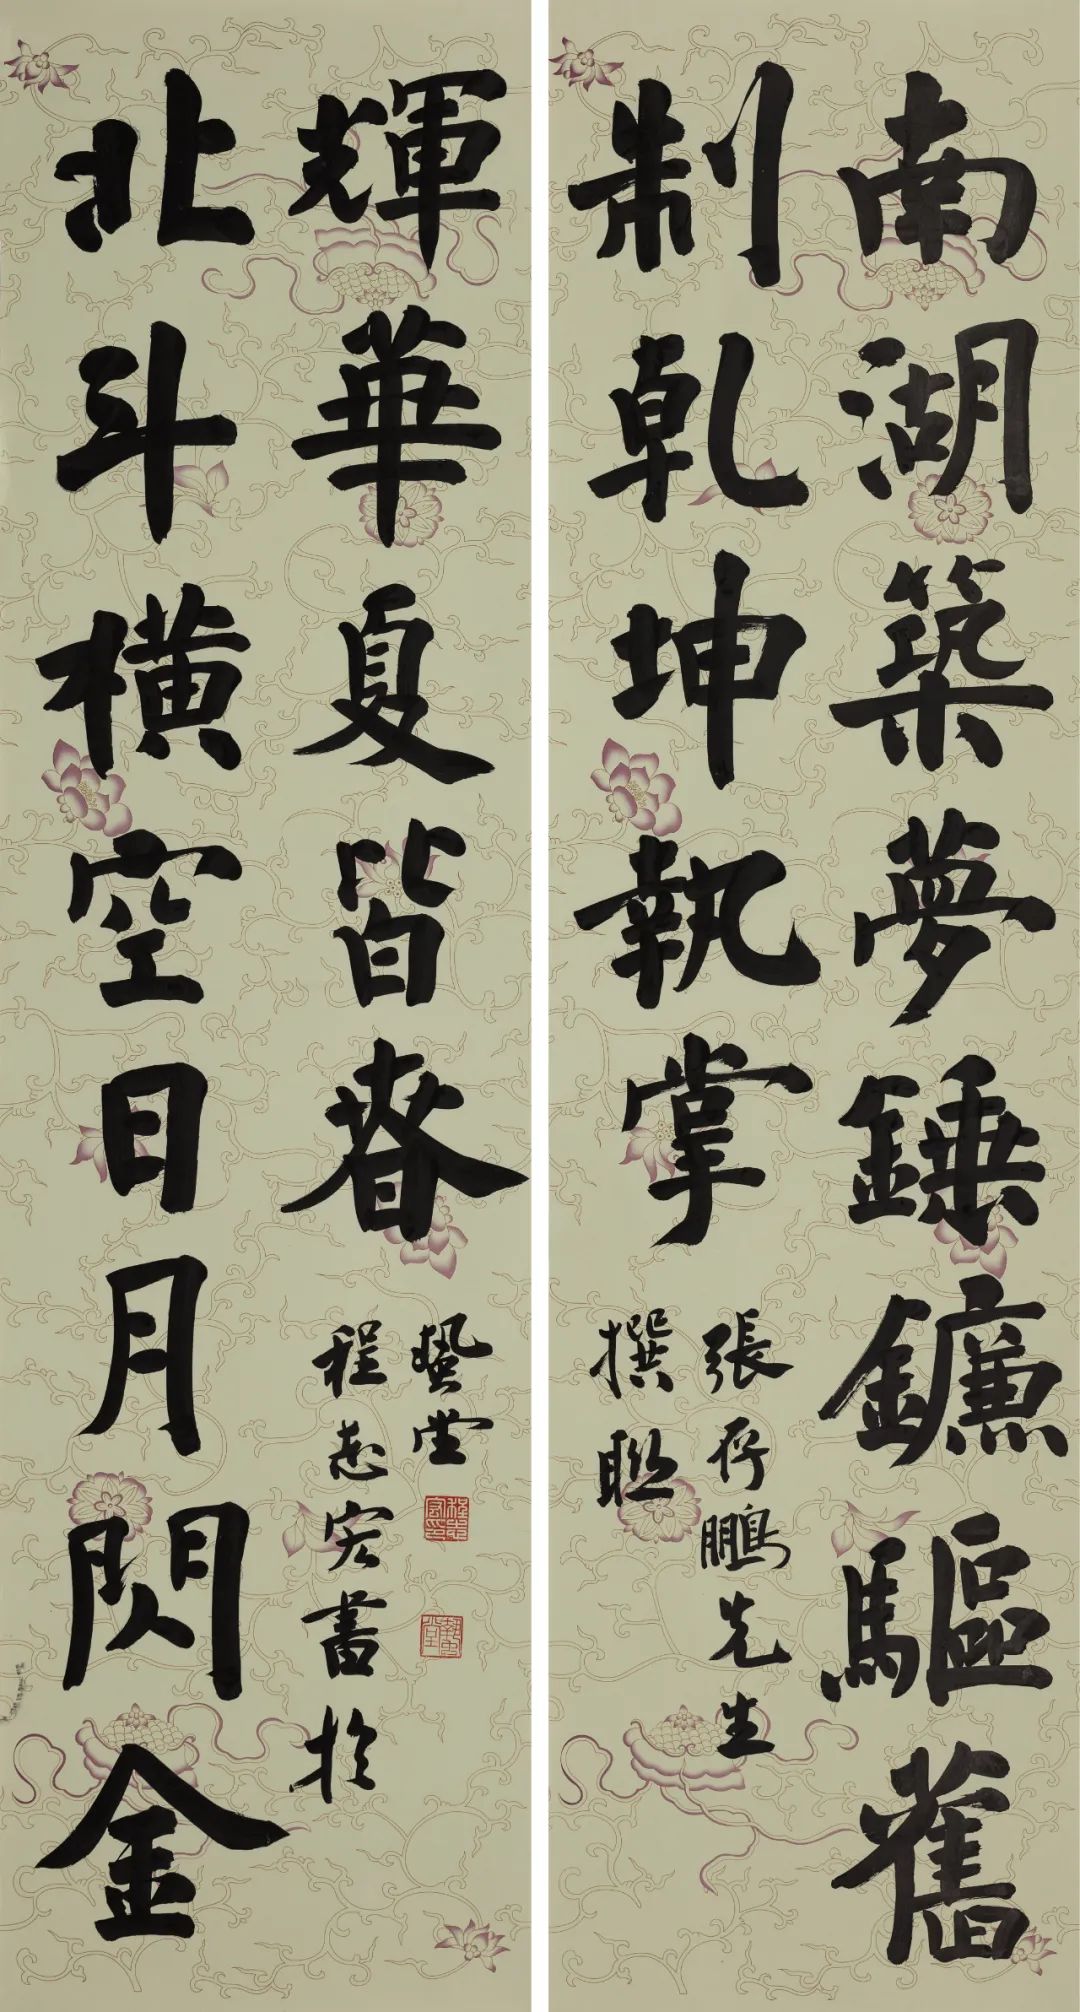 南湖築夢錘鐮驅舊
制乾坤執掌
張存鵬先生
撰聯
北斗橫空日月閃金
輝華夏皆春
程志宏書於
蟄堂